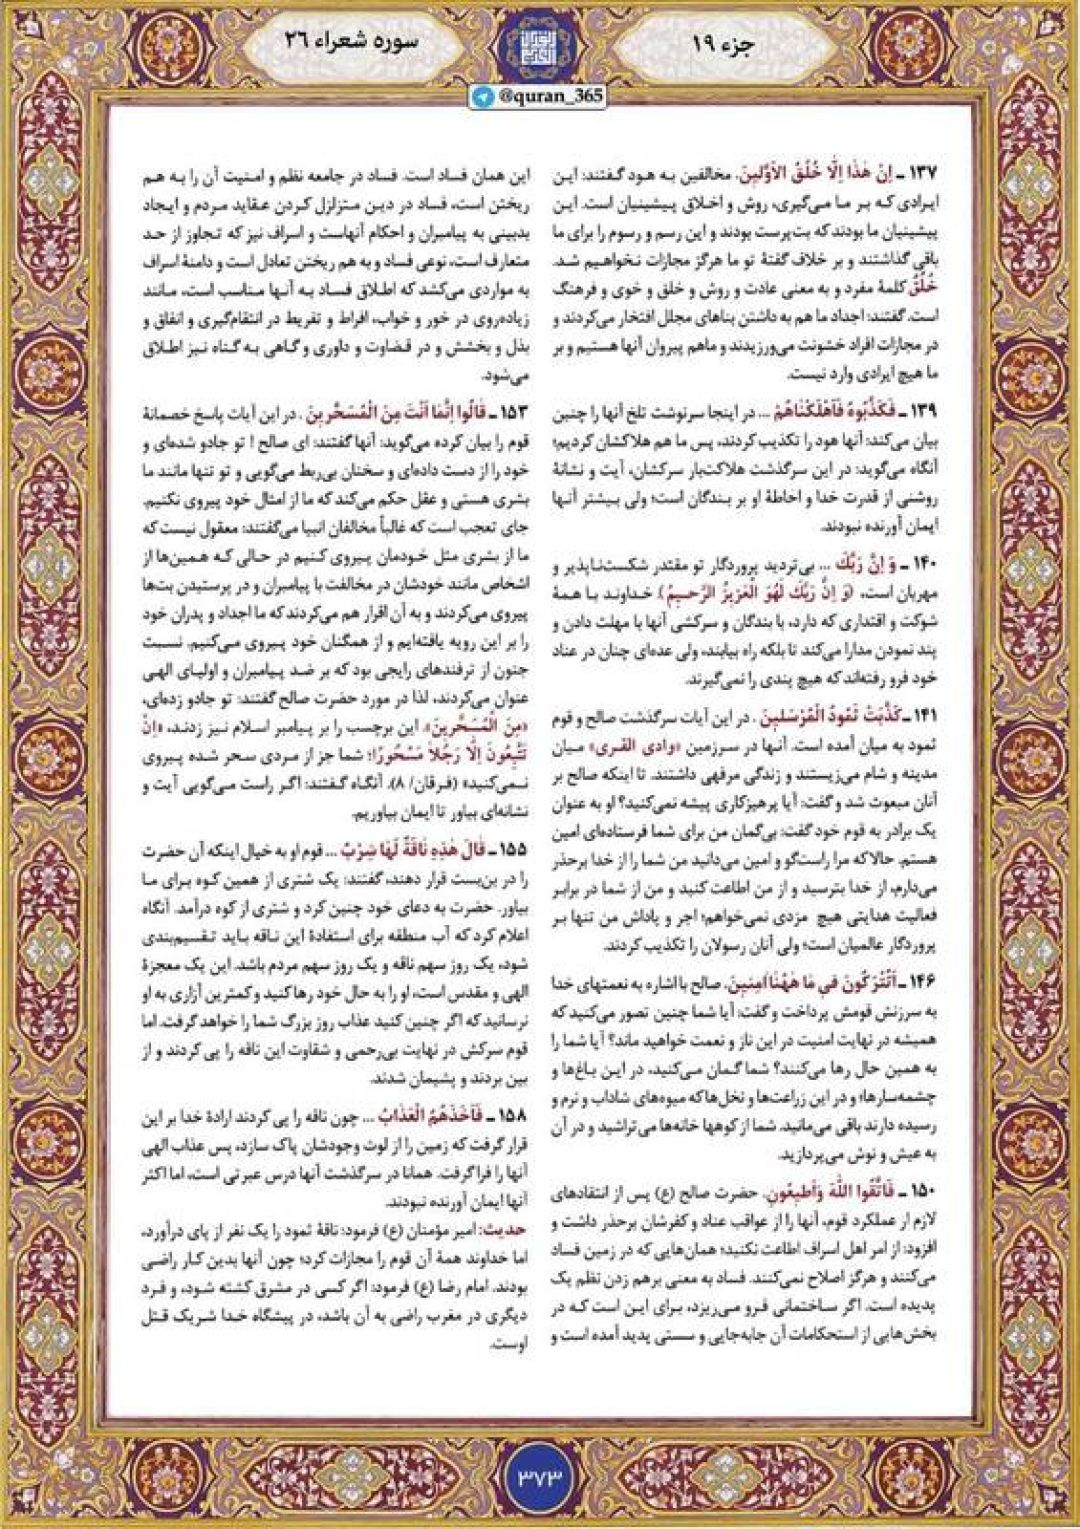 جزء ۱۹
سوره شعراء ۲۶
@quran_365
۱۳۷ ـ إِنْ هٰذَا إِلَّا خُلُقُ الْأَوَّلِينَ. مخالفین به هود گفتند: این
ایرادی که بر ما می‌گیری، روش و اخلاق پیشینیان است. این
پیشینیان ما بودند که بت‌پرست بودند و این رسم و رسوم را برای ما
باقی گذاشتند و بر خلاف گفتهٔ تو ما هرگز مجازات نخواهیم شد.
خُلُقُ کلمهٔ مفرد و به معنی عادت و روش و خلق و خوی و فرهنگ
است. گفتند: اجداد ما هم به داشتن بناهای مجلل افتخار می‌کردند و
در مجازات افراد خشونت می‌ورزیدند و ماهم پیروان آنها هستیم و بر
ما هیچ ایرادی وارد نیست.
۱۳۹ ـ فَكَذَّبُوهُ فَأَهْلَكْنَاهُمْ ... در اینجا سرنوشت تلخ آنها را چنین
بیان می‌کند: آنها هود را تکذیب کردند، پس ما هم هلاکشان کردیم؛
آنگاه می‌گوید: در این سرگذشت هلاکت‌بار سرکشان، آیت و نشانهٔ
روشنی از قدرت خدا و احاطهٔ او بر بندگان است؛ ولی بیشتر آنها
ایمان آورنده نبودند.
۱۴۰ ـ وَ إِنَّ رَبَّكَ ... بی‌تردید پروردگار تو مقتدر شکست‌ناپذیر و
مهربان است، (وَ إِنَّ رَبَّكَ لَهُوَ الْعَزِيزُ الرَّحِيمُ). خداوند با همهٔ
شوکت و اقتداری که دارد، با بندگان و سرکشی آنها با مهلت دادن و
پند نمودن مدارا می‌کند تا بلکه راه بیابند، ولی عده‌ای چنان در عناد
خود فرو رفته‌اند که هیچ پندی را نمی‌گیرند.
۱۴۱ ـ كَذَّبَتْ ثَمُودُ الْمُرْسَلِينَ. در این آیات سرگذشت صالح و قوم
ثمود به میان آمده است. آنها در سرزمین «وادی القری» میان
مدینه و شام می‌زیستند و زندگی مرفهی داشتند. تا اینکه صالح بر
آنان مبعوث شد و گفت: آیا پرهیزکاری پیشه نمی‌کنید؟ او به عنوان
یک برادر به قوم خود گفت: بی‌گمان من برای شما فرستاده‌ای امین
هستم. حالا که مرا راست‌گو و امین می‌دانید من شما را از خدا برحذر
می‌دارم، از خدا بترسید و از من اطاعت کنید و من از شما در برابر
فعالیت هدایتی هیچ مزدی نمی‌خواهم؛ اجر و پاداش من تنها بر
پروردگار عالمیان است؛ ولی آنان رسولان را تکذیب کردند.
۱۴۶ ـ أَتُتْرَكُونَ فِي مَا هٰهُنَا آمِنِينَ. صالح با اشاره به نعمتهای خدا
به سرزنش قومش پرداخت و گفت: آیا شما چنین تصور می‌کنید که
همیشه در نهایت امنیت در این ناز و نعمت خواهید ماند؟ آیا شما را
به همین حال رها می‌کنند؟ شما گمان می‌کنید، در این باغ‌ها و
چشمه‌سارها؛ و در این زراعت‌ها و نخل‌ها که میوه‌های شاداب و نرم و
رسیده دارند باقی می‌مانید. شما از کوهها خانه‌ها می‌تراشید و در آن
به عیش و نوش می‌پردازید.
۱۵۰ ـ فَاتَّقُوا اللَّهَ وَأَطِيعُونِ. حضرت صالح (ع) پس از انتقادهای
لازم از عملکرد قوم، آنها را از عواقب عناد و کفرشان برحذر داشت و
افزود: از امر اهل اسراف اطاعت نکنید؛ همان‌هایی که در زمین فساد
می‌کنند و هرگز اصلاح نمی‌کنند. فساد به معنی برهم زدن نظم یک
پدیده است. اگر ساختمانی فرو می‌ریزد، برای این است که در
بخش‌هایی از استحکامات آن جابه‌جایی و سستی پدید آمده است و
این همان فساد است. فساد در جامعه نظم و امنیت آن را به هم
ریختن است، فساد در دین متزلزل کردن عقاید مردم و ایجاد
بدبینی به پیامبران و احکام آنهاست و اسراف نیز که تجاوز از حد
متعارف است، نوعی فساد و به هم ریختن تعادل است و دامنهٔ اسراف
به مواردی می‌کشد که اطلاق فساد به آنها مناسب است، مانند
زیاده‌روی در خور و خواب، افراط و تفریط در انتقام‌گیری و انفاق و
بذل و بخشش و در قضاوت و داوری و گاهی به گناه نیز اطلاق
می‌شود.
۱۵۳ ـ قَالُوا إِنَّمَا أَنْتَ مِنَ الْمُسَحَّرِينَ. در این آیات پاسخ خصمانهٔ
قوم را بیان کرده می‌گوید: آنها گفتند: ای صالح ! تو جادو شده‌ای و
خود را از دست داده‌ای و سخنان بی‌ربط می‌گویی و تو تنها مانند ما
بشری هستی و عقل حکم می‌کند که ما از امثال خود پیروی نکنیم.
جای تعجب است که غالباً مخالفان انبیا می‌گفتند: معقول نیست که
ما از بشری مثل خودمان پیروی کنیم در حالی که همین‌ها از
اشخاص مانند خودشان در مخالفت با پیامبران و در پرستیدن بت‌ها
پیروی می‌کردند و به آن اقرار هم می‌کردند که ما اجداد و پدران خود
را بر این رویه یافته‌ایم و از همگنان خود پیروی می‌کنیم. نسبت
جنون از ترفندهای رایجی بود که بر ضد پیامبران و اولیای الهی
عنوان می‌کردند، لذا در مورد حضرت صالح گفتند: تو جادو زده‌ای،
«مِنَ الْمُسَحَّرِينَ». این برچسب را بر پیامبر اسلام نیز زدند، «إِنْ
تَتَّبِعُونَ إِلَّا رَجُلاً مَسْحُورًا؛ شما جز از مردی سحر شده پیروی
نمی‌کنید» (فرقان/ ۸). آنگاه گفتند: اگر راست می‌گویی آیت و
نشانه‌ای بیاور تا ایمان بیاوریم.
۱۵۵ ـ قَالَ هٰذِهِ نَاقَةٌ لَهَا شِرْبٌ ... قوم او به خیال اینکه آن حضرت
را در بن‌بست قرار دهند، گفتند: یک شتری از همین کوه برای ما
بیاور. حضرت به دعای خود چنین کرد و شتری از کوه درآمد. آنگاه
اعلام کرد که آب منطقه برای استفادهٔ این ناقه باید تقسیم‌بندی
شود، یک روز سهم ناقه و یک روز سهم مردم باشد. این یک معجزهٔ
الهی و مقدس است، او را به حال خود رها کنید و کمترین آزاری به او
نرسانید که اگر چنین کنید عذاب روز بزرگ شما را خواهد گرفت. اما
قوم سرکش در نهایت بی‌رحمی و شقاوت این ناقه را پی کردند و از
بین بردند و پشیمان شدند.
۱۵۸ ـ فَأَخَذَهُمُ الْعَذَابُ ... چون ناقه را پی کردند ارادهٔ خدا بر این
قرار گرفت که زمین را از لوث وجودشان پاک سازد، پس عذاب الهی
آنها را فرا گرفت. همانا در سرگذشت آنها درس عبرتی است، اما اکثر
آنها ایمان آورنده نبودند.
حدیث: امیر مؤمنان (ع) فرمود: ناقهٔ ثمود را یک نفر از پای درآورد،
اما خداوند همهٔ آن قوم را مجازات کرد؛ چون آنها بدین کار راضی
بودند. امام رضا (ع) فرمود: اگر کسی در مشرق کشته شود، و فرد
دیگری در مغرب راضی به آن باشد، در پیشگاه خدا شریک قتل
اوست.
۳۷۳